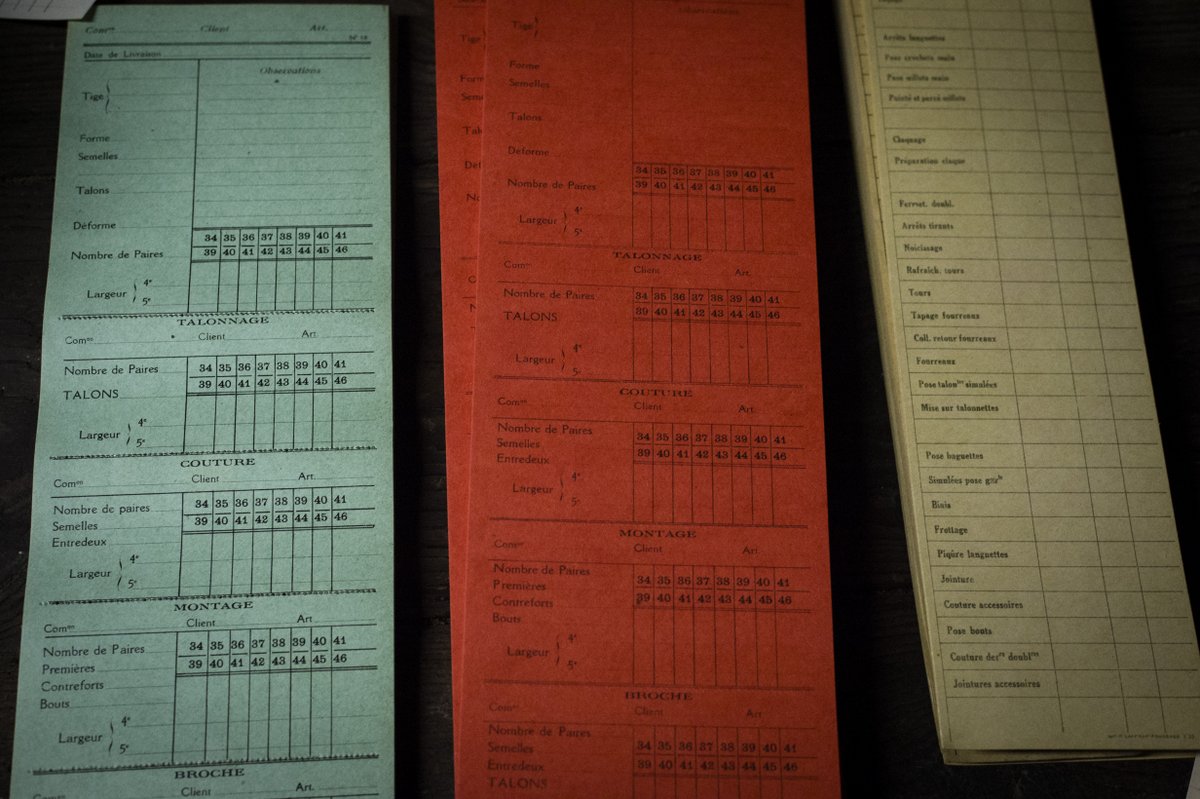 Comᵒⁿ Client Art.
Nº 18
Date de Livraison
Observations
Tige
Forme
Semelles
Talons
Déforme
34 35 36 37 38 39 40 41
Nombre de Paires 39 40 41 42 43 44 45 46
Largeur 4ᵉ
5ᵉ
TALONNAGE
Comᵒⁿ Client Art
Nombre de Paires 34 35 36 37 38 39 40 41
TALONS 39 40 41 42 43 44 45 46
Largeur 4ᵉ
5ᵉ
COUTURE
Comᵒⁿ Client Art.
Nombre de paires 34 35 36 37 38 39 40 41
Semelles 39 40 41 42 43 44 45 46
Entredeux
Largeur 4ᵉ
5ᵉ
MONTAGE
Comᵒⁿ Client Art
Nombre de Paires 34 35 36 37 38 39 40 41
Premières 39 40 41 42 43 44 45 46
Contreforts
Bouts
Largeur 4ᵉ
5ᵉ
BROCHE
Client Art.
Tige
Observations
Tige
Forme
Semelles
Talons
Déforme
34 35 36 37 38 39 40 41
Nombre de Paires 39 40 41 42 43 44 45 46
Largeur 4ᵉ
5ᵉ
TALONNAGE
Comᵒⁿ Client Art.
Nombre de Paires 34 35 36 37 38 39 40 41
TALONS 39 40 41 42 43 44 45 46
Largeur 4ᵉ
5ᵉ
COUTURE
Comᵒⁿ Client Art.
Nombre de Paires 34 35 36 37 38 39 40 41
Semelles 39 40 41 42 43 44 45 46
Entredeux
Largeur 4ᵉ
5ᵉ
MONTAGE
Comᵒⁿ Client Art
Nombre de Paires 34 35 36 37 38 39 40 41
Premières 39 40 41 42 43 44 45 46
Contreforts
Bouts
Largeur 4ᵉ
5ᵉ
BROCHE
Comᵒⁿ Client Art.
Nombre de Paires
Semelles 34 35 36 37 38 39 40 41
Entredeux 39 40 41 42 43 44 45 46
TALONS
Arrêts languettes
Pose crochets main
Pose œillets main
Claquage
Préparation claque
Fermet. doubl.
Arrêts tirants
Noircissage
Rafraîch. tours
Tours
Tapage fourreaux
Coll. retour fourreaux
Fourreaux
Pose talonᵗᵉˢ simulées
Mise sur talonnettes
Pose baguettes
Simulées pose
Biais
Frottage
Piqûre languettes
Jointure
Couture accessoires
Pose bouts
Couture derʳᵉ doublʳᵉˢ
Jointures accessoires